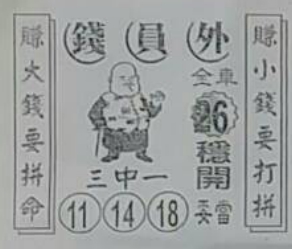 外員錢
賺小錢要打拼
賺大錢要拼命
全車
26
穩開
三中一
11 14 18